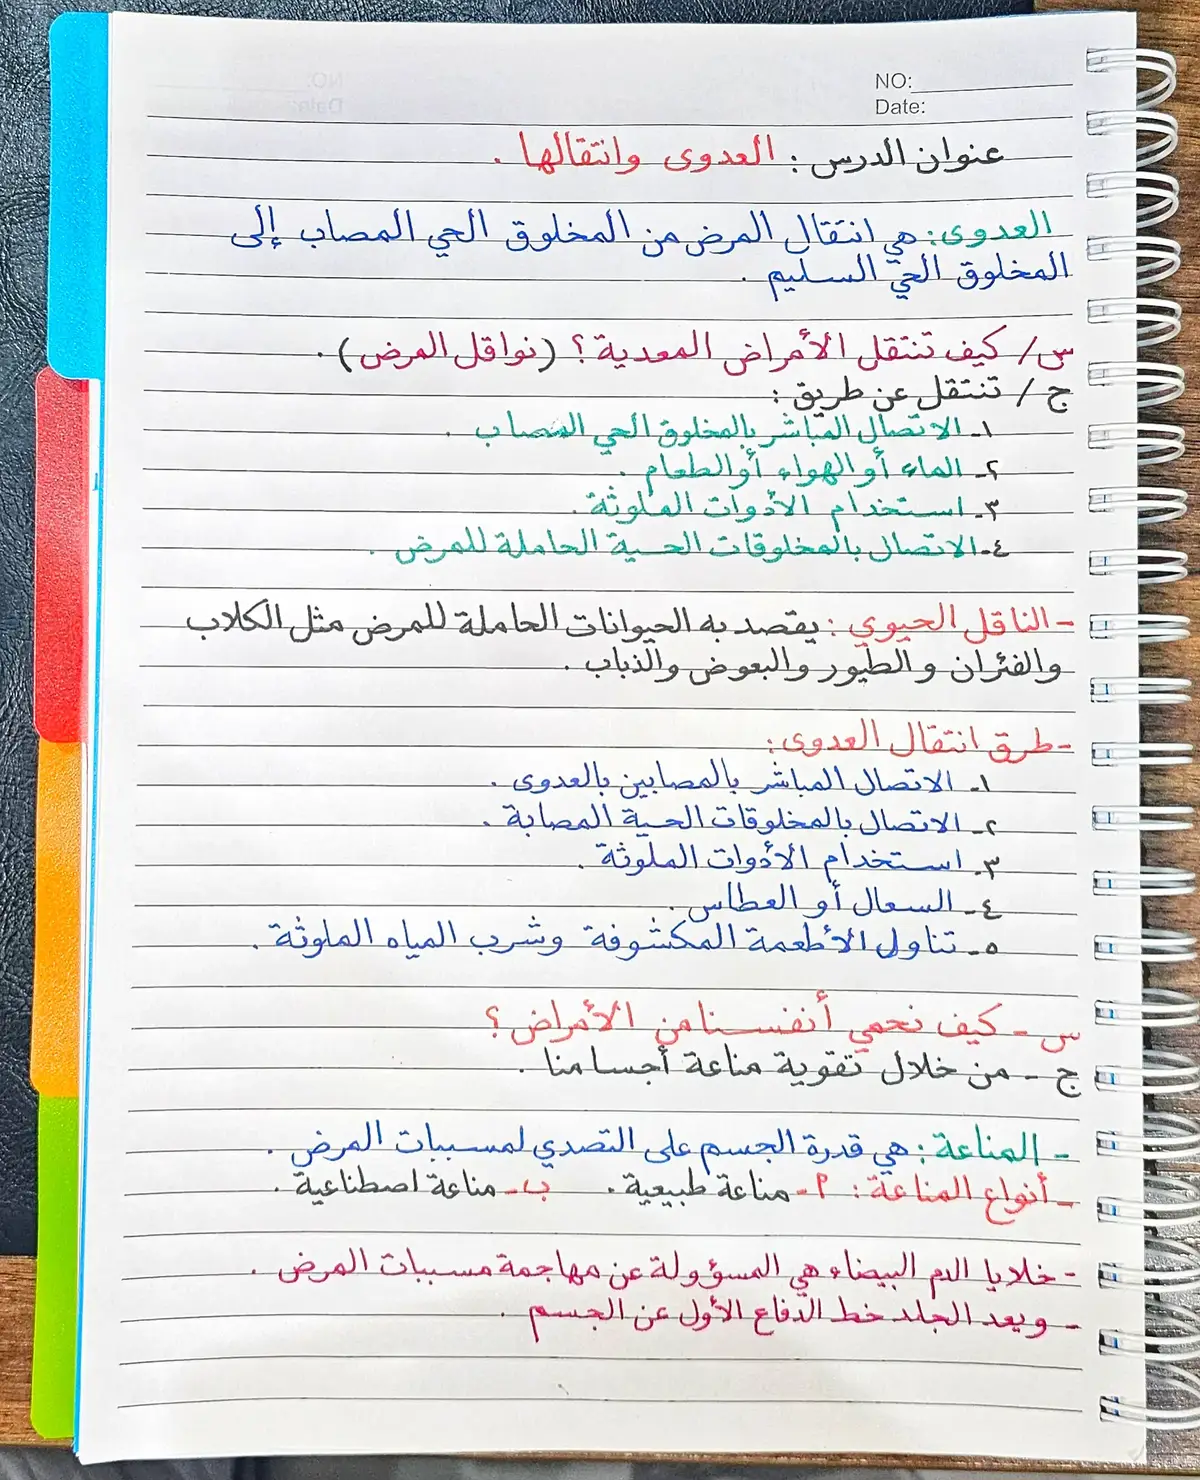 NO:
Date:
عنوان الدرس : العدوى وانتقالها .
العدوى : هي انتقال المرض من المخلوق الحي المصاب إلى
المخلوق الحي السليم .
س/ كيف تنتقل الأمراض المعدية ؟ (نواقل المرض) .
ج / تنتقل عن طريق :
١- الاتصال المباشر بالمخلوق الحي المصاب .
٢- الماء أو الهواء أو الطعام .
٣- استخدام الأدوات الملوثة .
٤- الاتصال بالمخلوقات الحية الحاملة للمرض .
- الناقل الحيوي : يقصد به الحيوانات الحاملة للمرض مثل الكلاب
والفئران والطيور والبعوض والذباب .
- طرق انتقال العدوى :
١- الاتصال المباشر بالمصابين بالعدوى .
٢- الاتصال بالمخلوقات الحية المصابة .
٣- استخدام الأدوات الملوثة .
٤- السعال أو العطاس .
٥- تناول الأطعمة المكشوفة وشرب المياه الملوثة .
س - كيف نحمي أنفسنا من الأمراض ؟
ج - من خلال تقوية مناعة أجسامنا .
- المناعة : هي قدرة الجسم على التصدي لمسببات المرض .
- أنواع المناعة : ٩- مناعة طبيعية . ب- مناعة اصطناعية .
- خلايا الدم البيضاء هي المسؤولة عن مهاجمة مسببات المرض .
- ويعد الجلد خط الدفاع الأول عن الجسم .